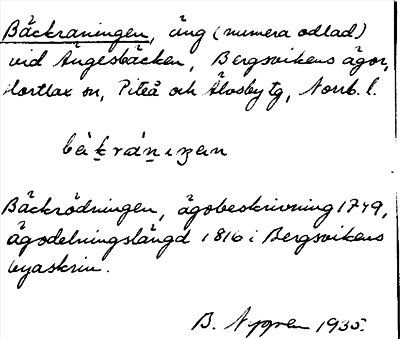 Bäckraningen, äng (numera odlad)
vid Ängesbäcken, Bergsvikens ägor,
Hortlax sn, Piteå och Älvsby tg, Norrb. l.
Bäckrödningen, ägobeskrivning 1749,
ägodelningslängd 1816 i Bergsvikens
byaskrin.
B. Nygren 1935.